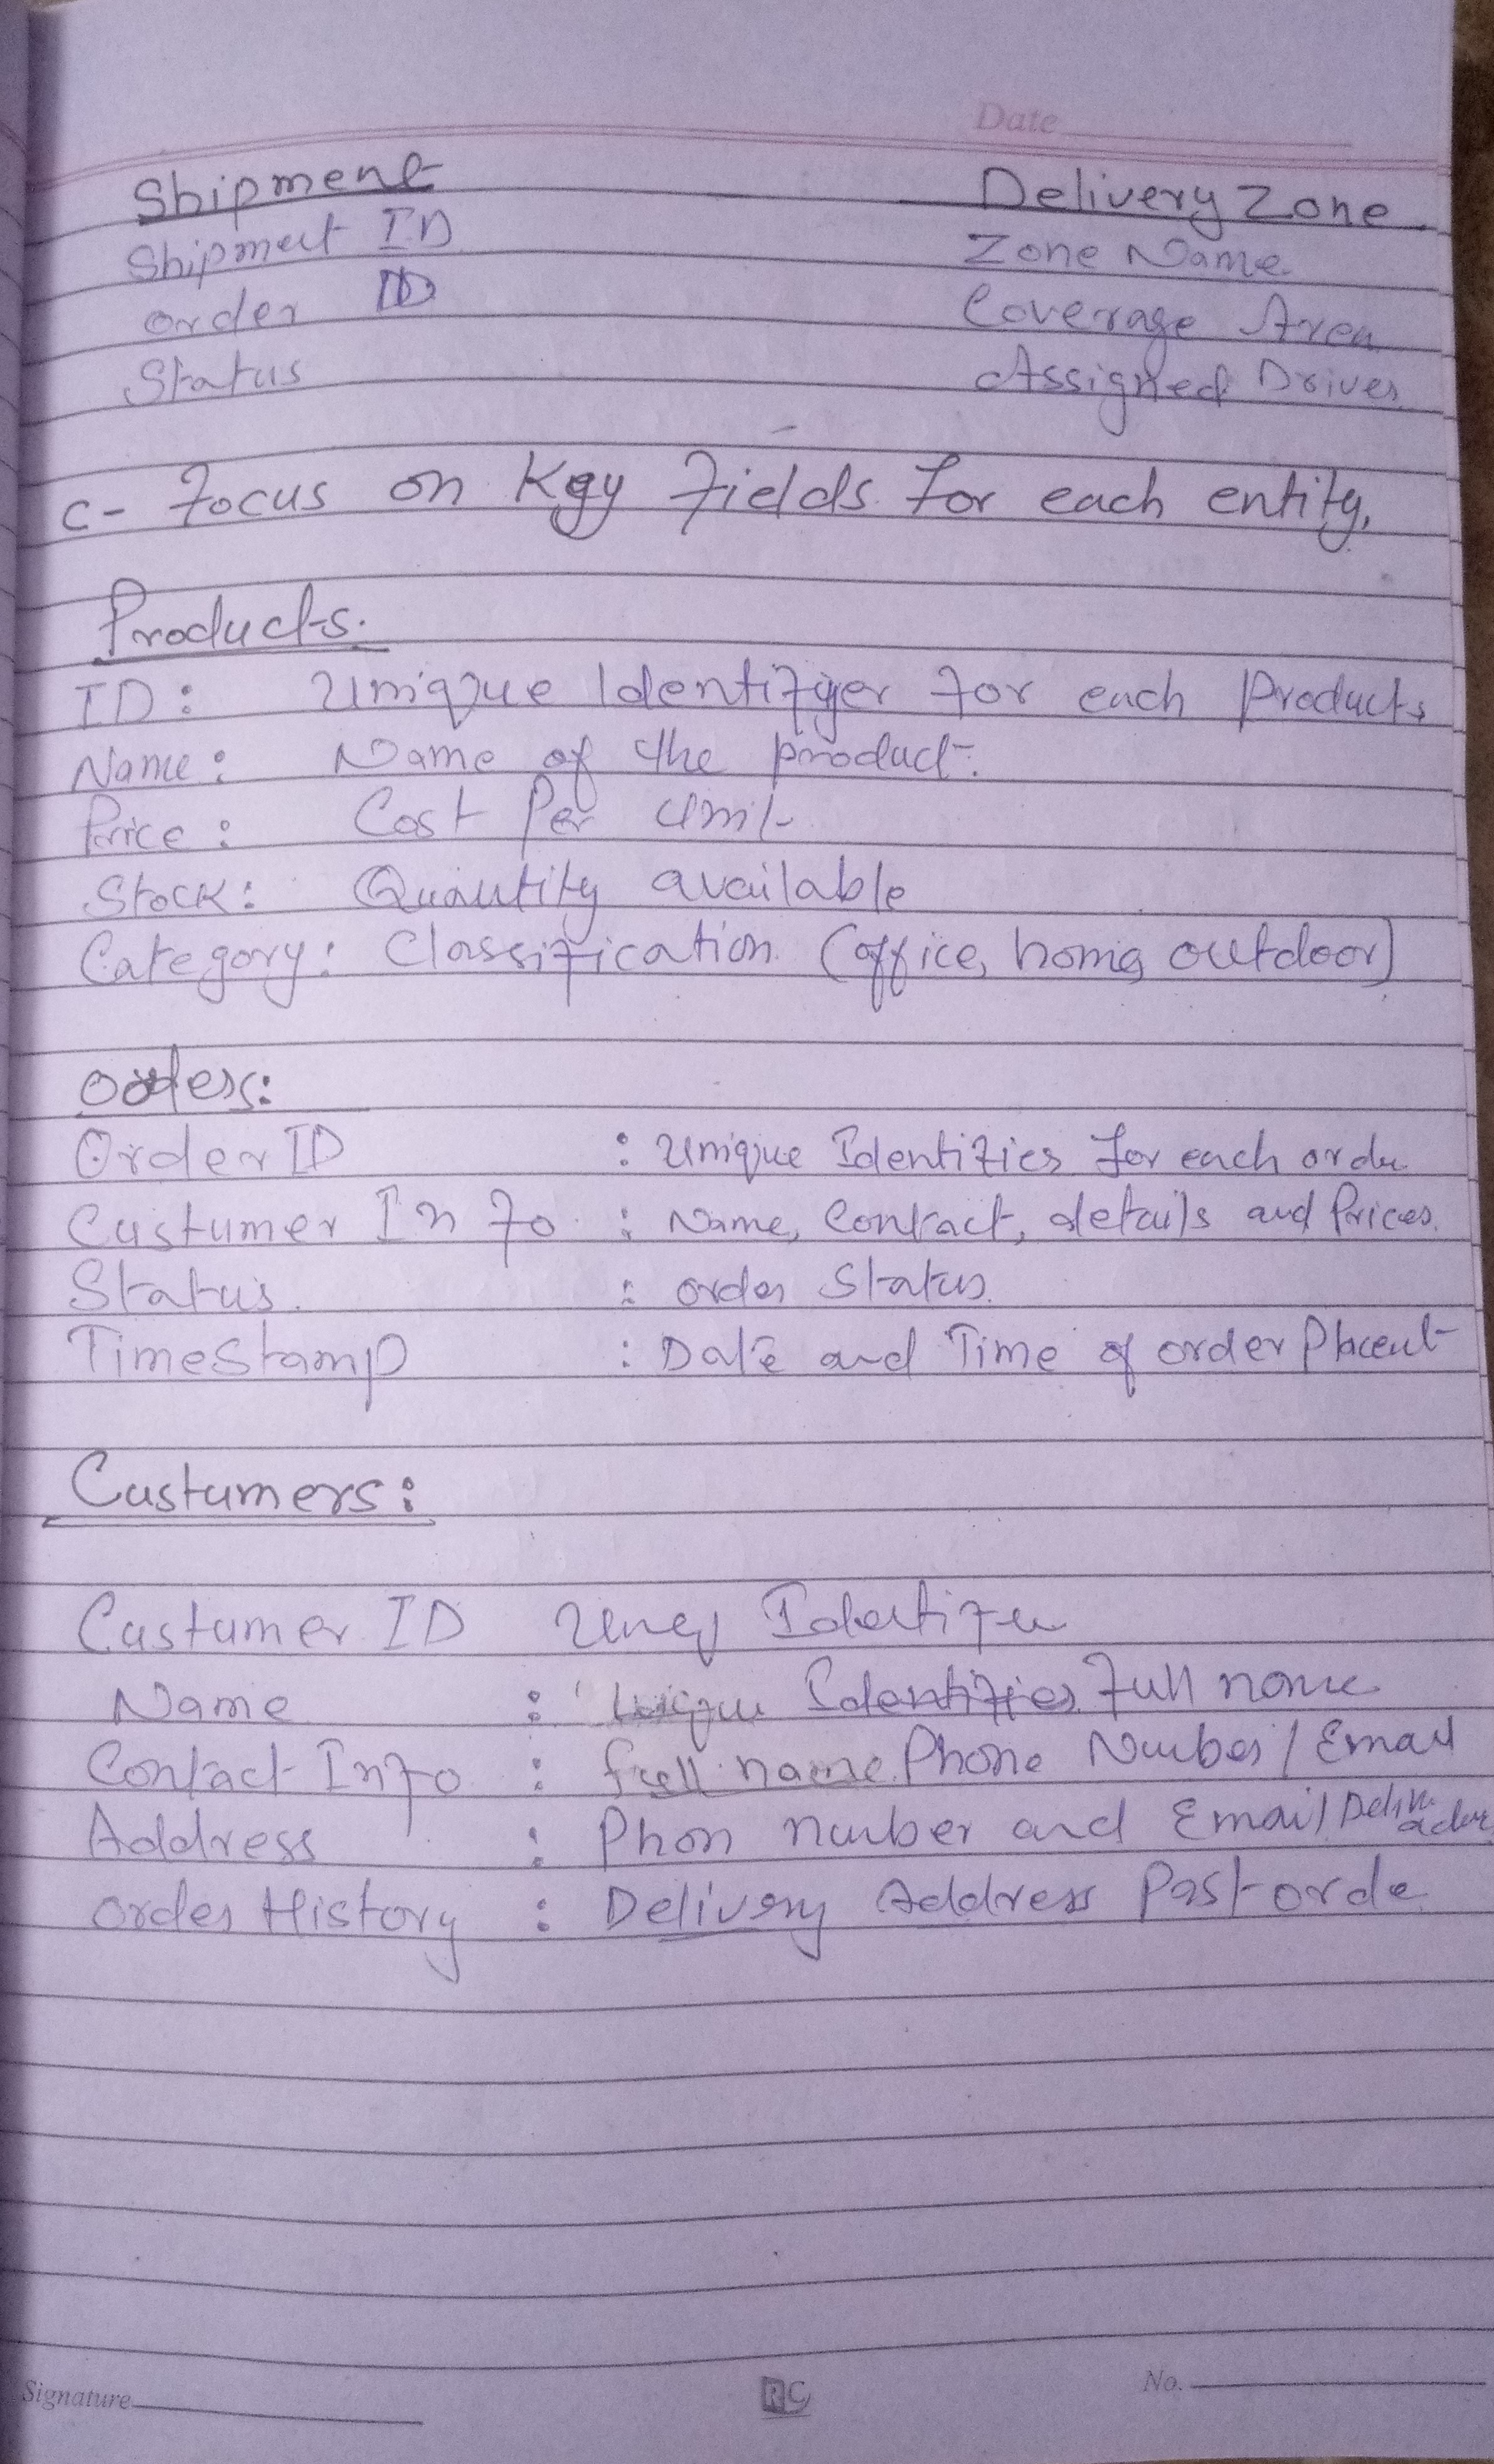 Date
Shipment Delivery Zone
Shipment ID Zone Name
order ID Coverage Area
Status Assigned Driver
C- Focus on Key Fields For each entity.
Products.
ID: Unique Identifyer for each Products
Name: Name of the product.
Price: Cost Per Unit
Stock: Quantity available
Category: Classification (office, home, outdoor)
orders:
Order ID : Unique Identifies for each order
Custumer Info : Name, Contact, details and Prices.
Status : order Status.
TimeStamp : Date and Time of order Placent
Custumers:
Custumer ID Identifier
Name : Unique Identifies Full name
Contact Info : full name Phone Number / Email
Address : Phon number and Email / 
order History : Delivery Address Past orde
Signature RC No.